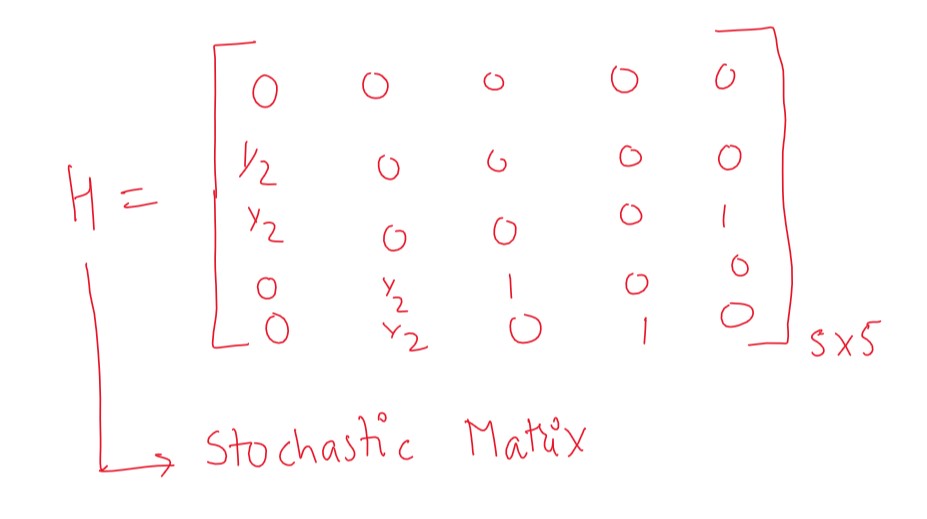 0 0 0 0 0
1/2 0 0 0 0
H = 1/2 0 0 0 1
0 1/2 1 0 0
0 1/2 0 1 0
5x5
Stochastic Matrix